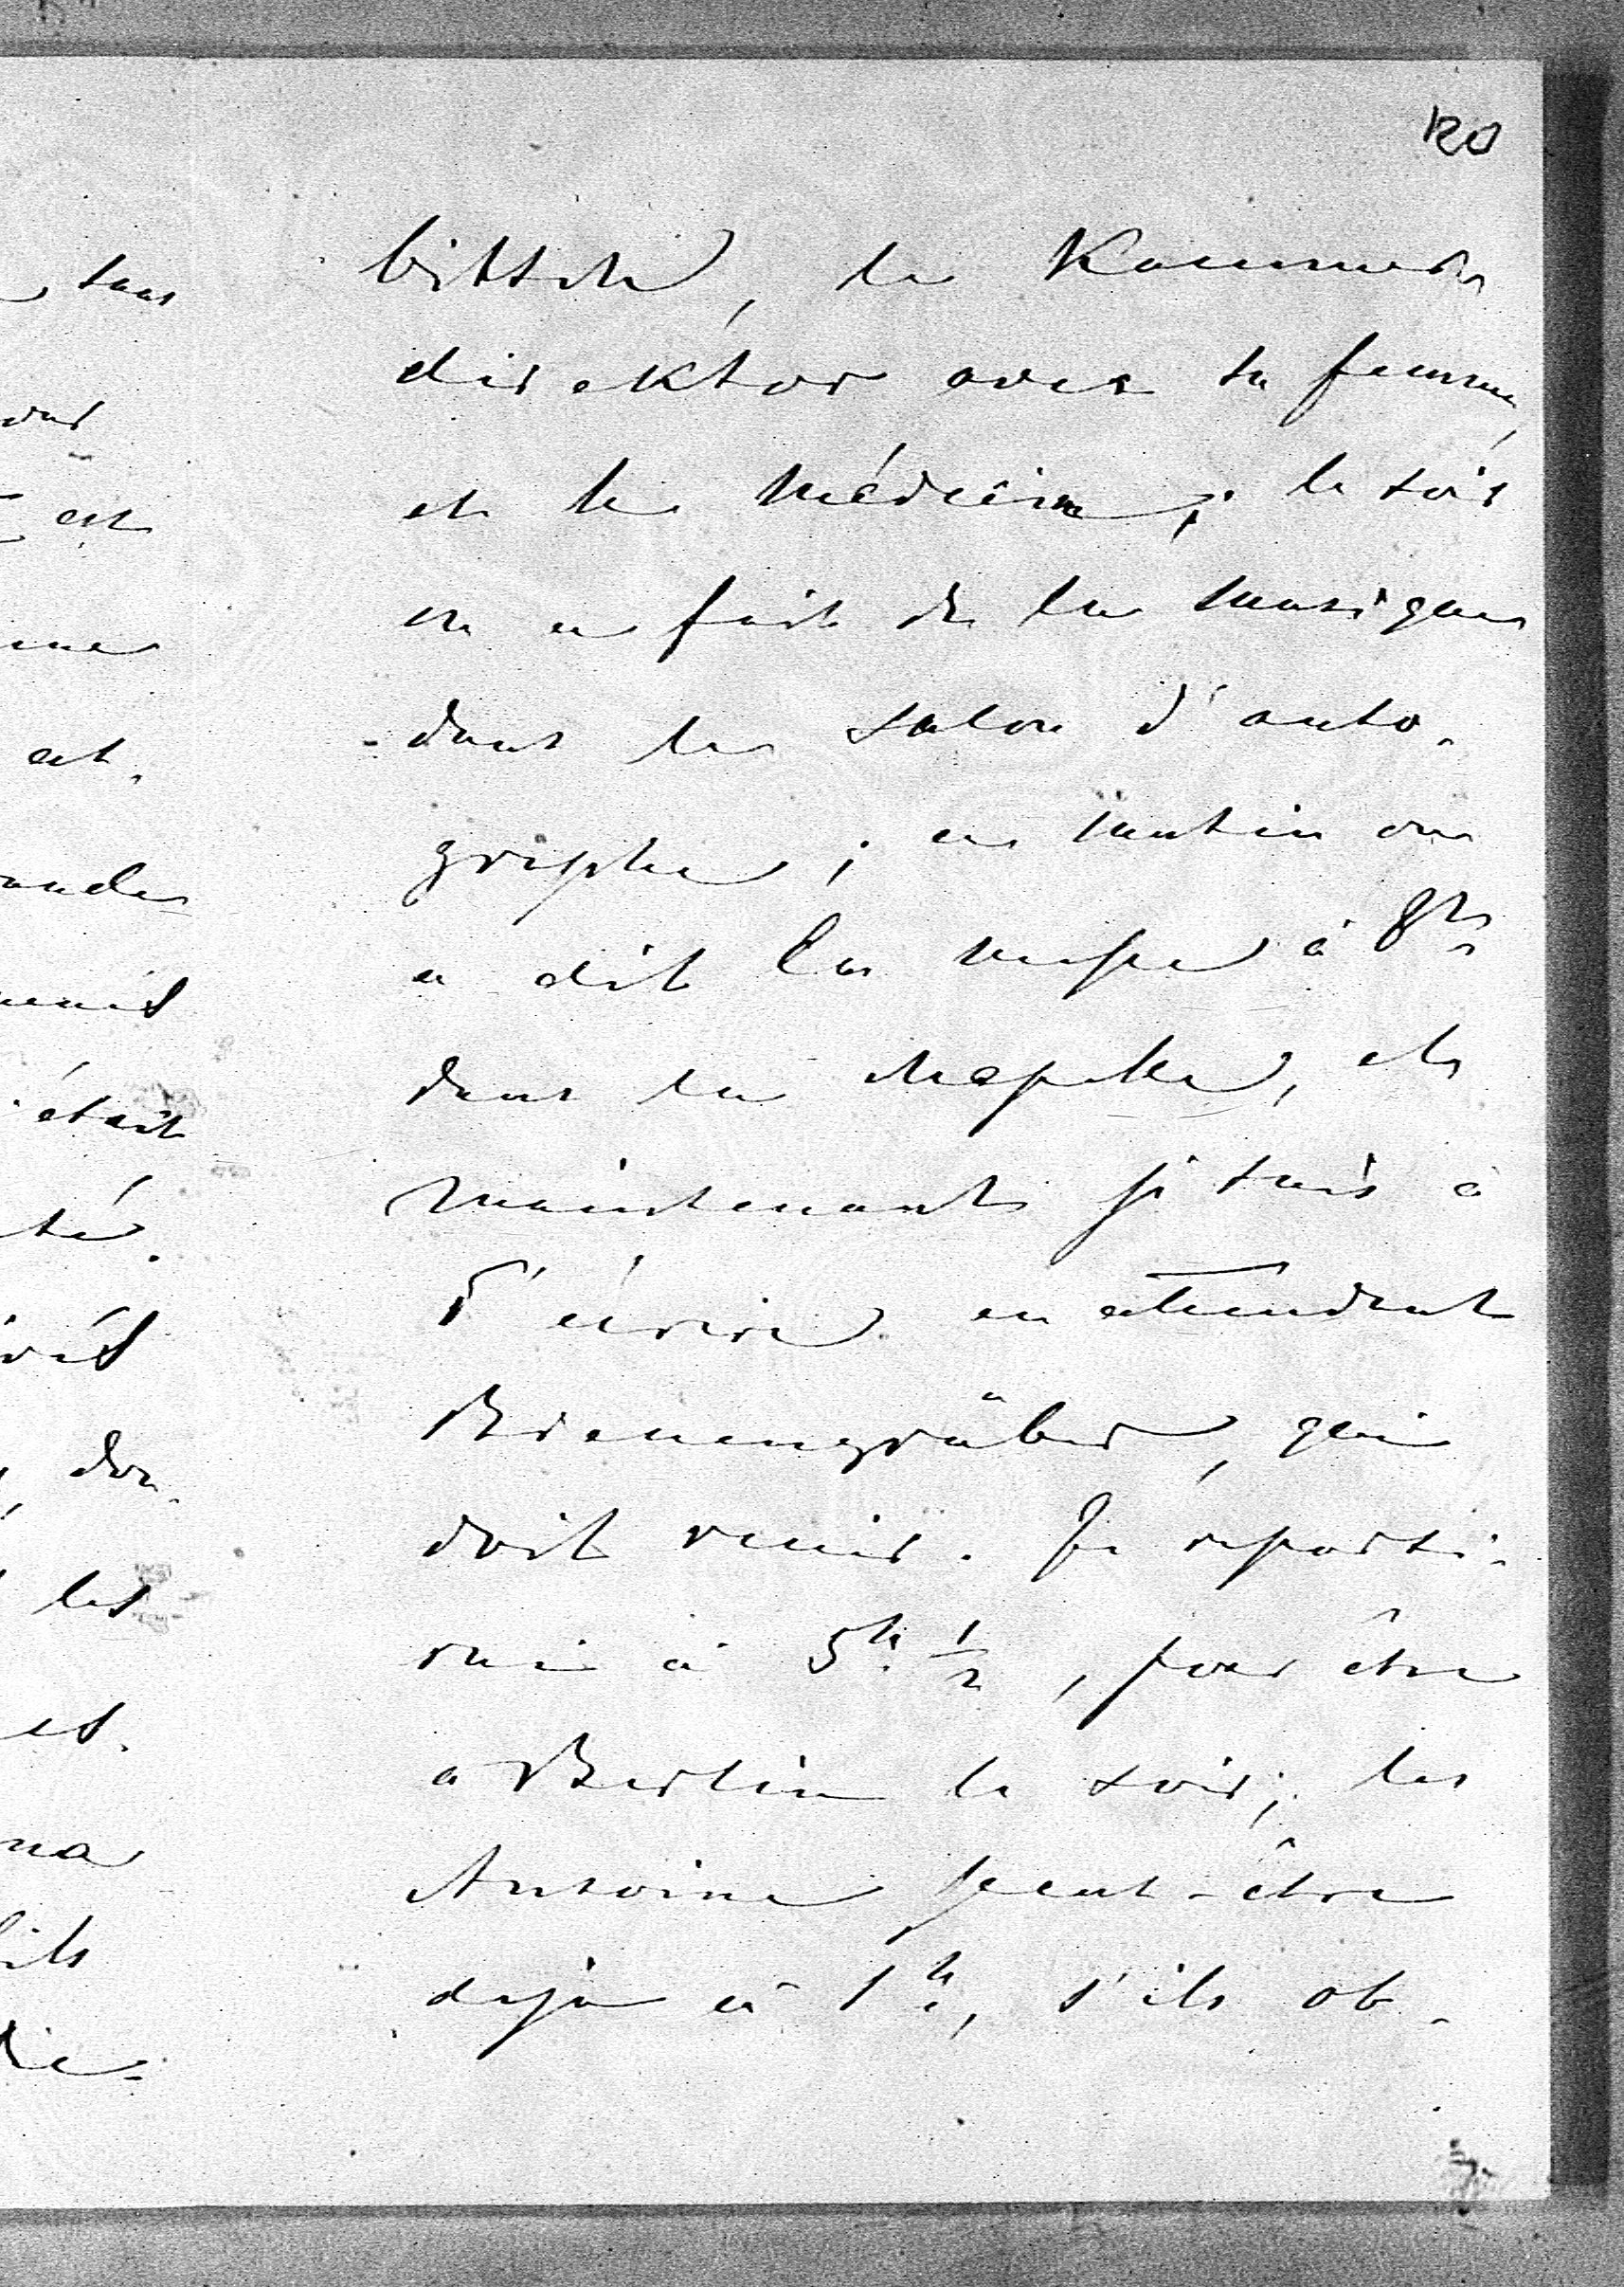 120
bitsch, le Kammer
direktor avec sa femme,
et le médecin; le soir
on a fait de la musique
dans le salon d'auto-
graphe; ce matin on
a dit la messe à 8h
dans la chapelle, et
maintenant je suis à
T'écrire en attendant
Bienengräber, qui
doit venir. Je reparti-
rai à 5h. 1/2, pour être
a Berlin le soir; les
Antoine peut-être
deja à 1h, s'ils ob-
tous
est
et.
était
té.
don-
les
et.